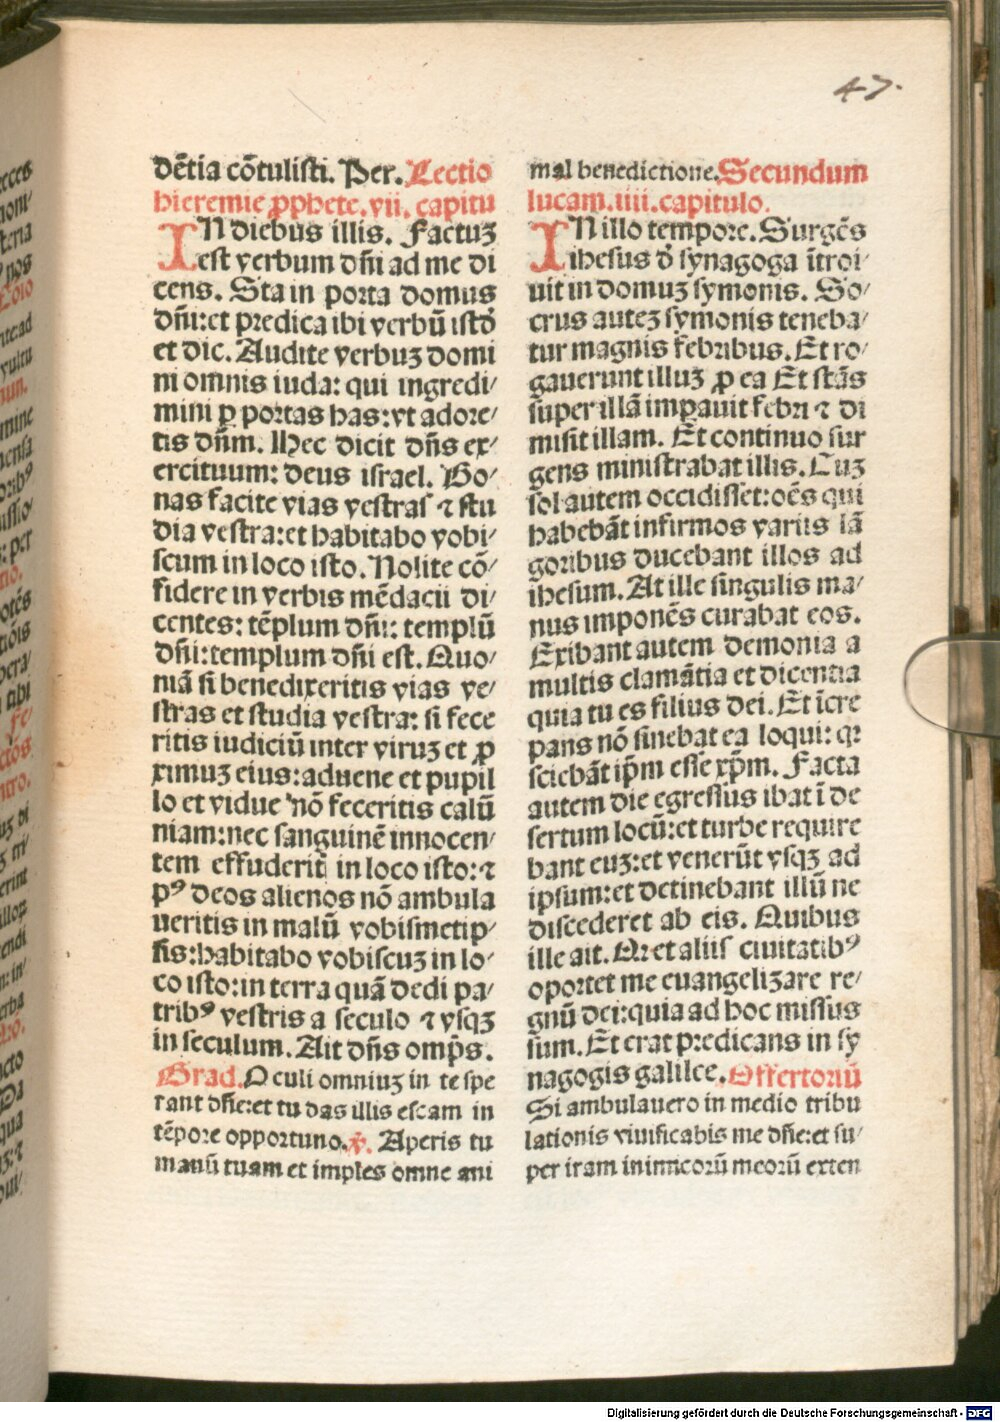 47.
dẽtia cõtulisti. Per. Lectio
hieremie ꝓphete. vii. capitu
IN diebus illis. Factuꝫ
est verbum dñi ad me di
cens. Sta in porta domus
dñi: et predica ibi verbũ istđ
et dic. Audite verbuꝫ domi
ni omnis iuda: qui ingredi/
mini ꝑ portas has: vt adore/
tis dñm. Hec dicit dñs ex/
ercituum: deus israel. Bo/
nas facite vias vestras ⁊ stu
dia vestra: et habitabo vobi/
scum in loco isto. Nolite cõ/
fidere in verbis mẽdacii di/
centes: tẽplum dñi: templũ
dñi: templum dñi est. Quo/
niã si benedixeritis vias ve/
stras et studia vestra: si fece
ritis iudiciũ inter viruꝫ et ꝓ
ximuꝫ eius: aduene et pupil
lo et vidue nõ feceritis calũ
niam: nec sanguinẽ innocen/
tem effuderit̃ in loco isto: ⁊
pꝰ deos alienos nõ ambula
ueritis in malũ vobismetip/
sis: habitabo vobiscuꝫ in lo/
co isto: in terra quã dedi pa/
tribꝰ vestris a seculo ⁊ vsqꝫ
in seculum. Ait dñs omp̃s.
Grad. Oculi omniuꝫ in te spe
rant dñe: et tu das illis escam in
tẽpore opportuno. ℣. Aperis tu
manũ tuam et imples omne ani
mal benedictione. Secundum
lucam. iiii. capitulo.
IN illo tempore. Surgẽs
ihesus đ synagoga ĩtroi/
uit in domuꝫ symonis. So/
crus auteꝫ symonis teneba/
tur magnis febribus. Et ro/
gauerunt illuꝫ ꝓ ea Et stãs
super illã imꝑauit febri ⁊ di
misit illam. Et continuo sur
gens ministrabat illis. Cuꝫ
sol autem occidisset: oẽs qui
habebãt infirmos variis lã
goribus ducebant illos ad
ihesum. At ille singulis ma/
nus imponẽs curabat eos.
Exibant autem demonia a
multis clamãtia et dicentia
quia tu es filius dei. Et ĩcre
pans nõ sinebat ea loqui: qꝛ
sciebãt ip̃m esse xp̃m. Facta
autem die egressus ibat ĩ de
sertum locũ: et turbe require
bant euꝫ: et venerũt vsqꝫ ad
ipsum: et detinebant illũ ne
discederet ab eis. Quibus
ille ait. Qꝛ et aliis ciuitatibꝰ
oportet me euangelizare re/
gnũ dei: quia ad hoc missus
sum. Et erat predicans in sy
nagogis galilee. Offertoriũ
Si ambulauero in medio tribu
lationis viuificabis me dñe: et su/
per iram inimicorũ meorũ exten
Digitalisierung gefördert durch die Deutsche Forschungsgemeinschaft - DFG